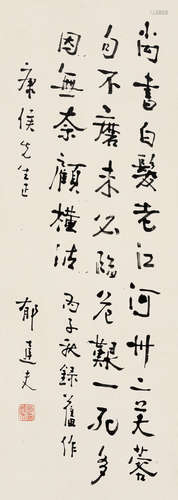 尚書白髮老江河卅二芙蓉
句不磨未必臨危艱一死多
因無奈顧橫波 丙子秋錄舊作
康侯先生正 郁達夫